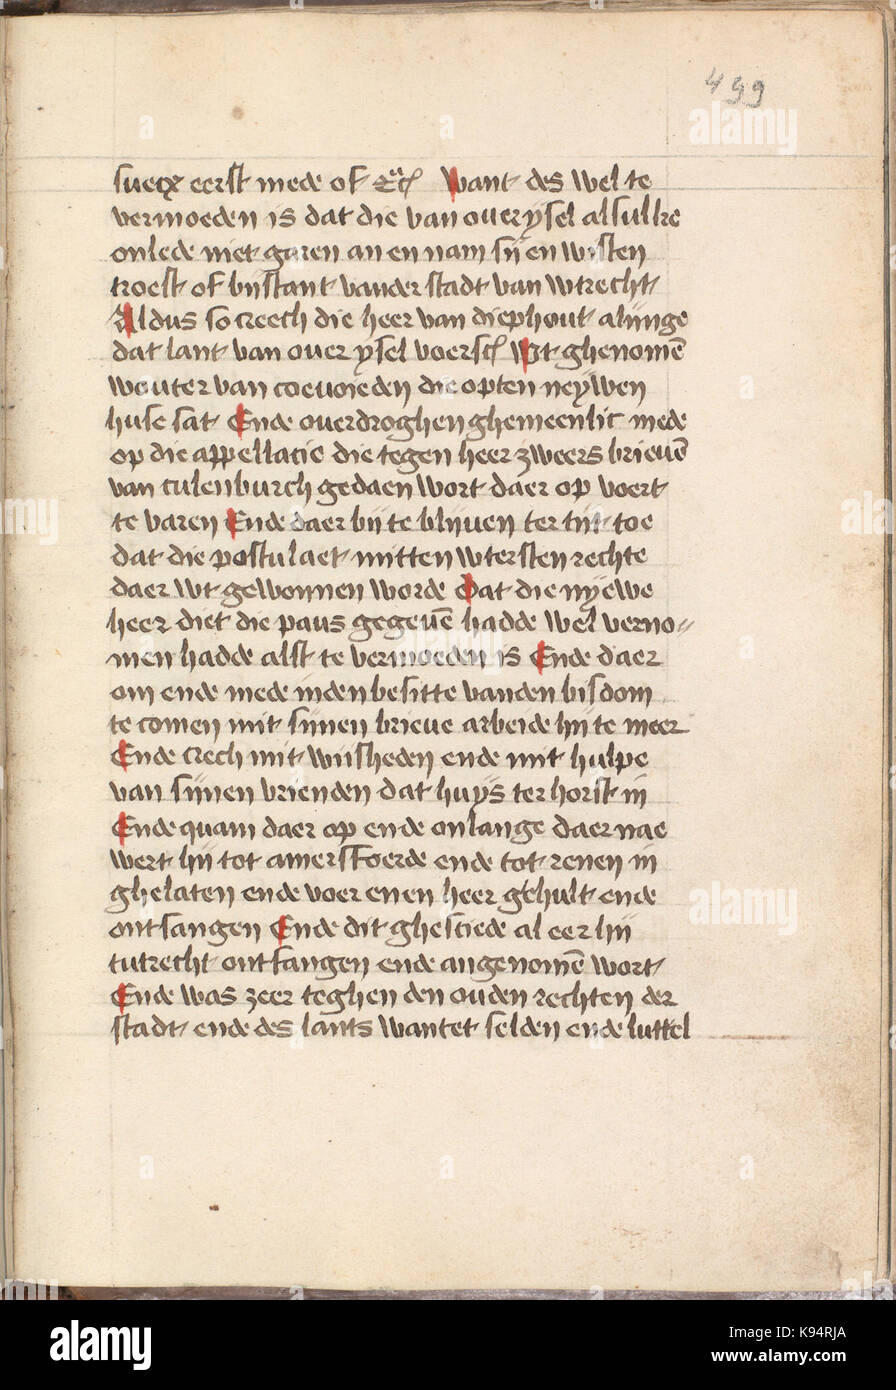 499
eerst mede of Want des wel te
vermoeden is dat die van ouerijsel alsulke
onlede niet garen an en nam sij en wisten
troest of bijstant vander stadt van wtrecht
Aldus so creech die heer van diephout alijnge
dat lant van ouer ysel voersc Wt ghenomē
wouter van coevorden die opten neywen
huse sat Ende overdroghen ghemeenlic mede
op die appellacie die tegen heer zweers brieuē
van culenburch gedaen wort daer op voert
te varen Ende daer bij te blijuen ter tijt toe
dat die postulaet mitten wtersten rechte
daer wt gewonnen worde Dat die nyewe
heer diet die paus gegeuē hadde wel verno=
men hadde alst te vermoeden is Ende daer
om ende mede inden besitte vanden bisdom
te comen mit sijnen brieue arbeide hij te meer
Ende crech mit wijsheden ende mit hulpe
van sijnen vrienden dat huys ter horst in
Ende quam daer op ende onlange daer nae
wert hij tot amersfoerde ende tot renen in
ghelaten ende voer enen heer gehult ende
ontfangen Ende dit ghesciede al eer hij
tutrecht ontfangen ende angenomē wort
Ende was zeer teghen den ouden rechten der
stadt ende des lants want et selden ende luttel
alamy
alamy stock photo
K94RJA
www.alamy.com